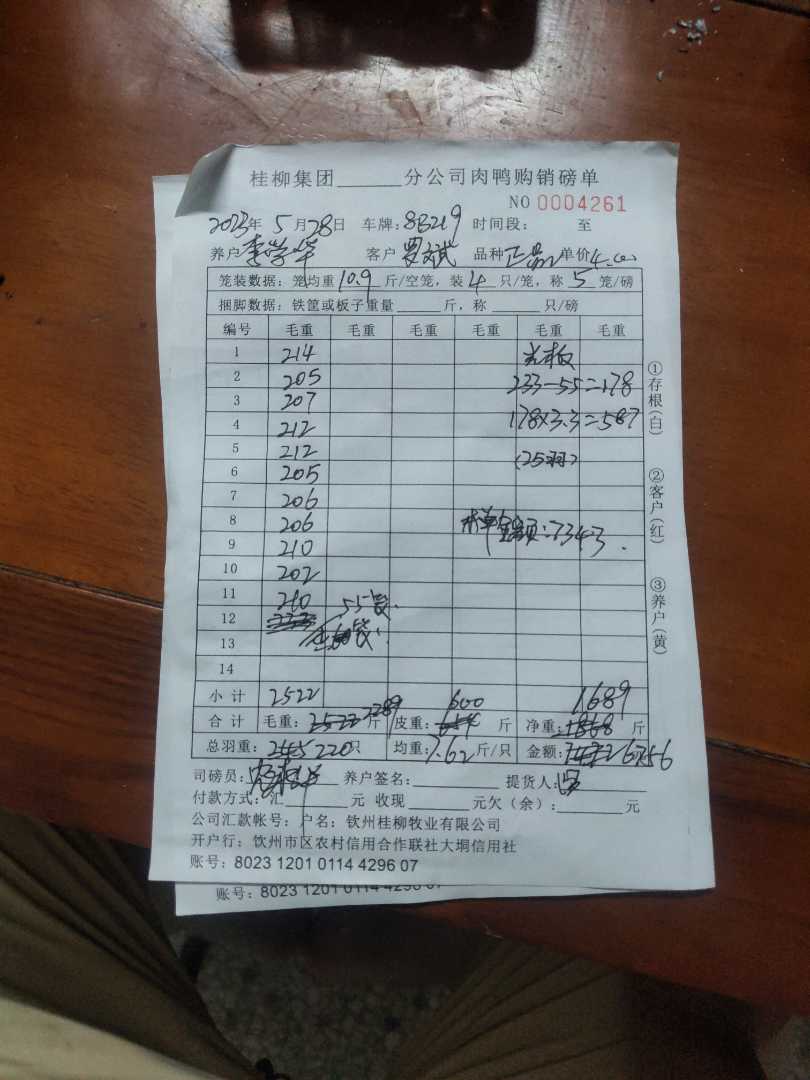 桂柳集团______分公司肉鸭购销磅单
NO 0004261
2023年 5月28日 车牌：8B219 时间段： 至
养户 李学华 客户 罗斌 品种 正品 单价 4.00
笼装数据：笼均重 10.9 斤/空笼，装 4 只/笼，称 5 笼/磅
捆脚数据：铁筐或板子重量_____斤，称______只/磅
编号 毛重 毛重 毛重 毛重 毛重 毛重
1 214
2 205 233-55=178
3 207
4 212 178×3.3=587
5 212 (25羽)
6 205
7 206
8 206 本单金额：7343.
9 210
10 202
11 210 55隻.
12
13
14
小计 2522 600 1689
合计 毛重：2522 2289 斤 皮重：654 斤 净重：1868 斤
总羽重：245 220只 均重：7.62斤/只 金额：7472 6756
司磅员： 养户签名： 提货人：
付款方式：汇________元 收现________元欠（余）：________元
公司汇款帐号：户名：钦州桂柳牧业有限公司
开户行：钦州市区农村信用合作联社大垌信用社
账号：8023 1201 0114 4296 07
账号：8023 1201 0114 4296 07
①存根(白)
②客户(红)
③养户(黄)